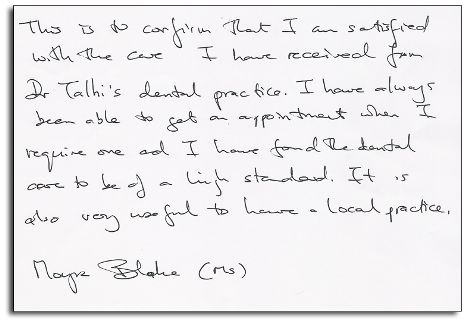 This is to confirm that I am satisfied
with the care I have received from
Dr Talhi's dental practice. I have always
been able to get an appointment when I
require one and I have found the dental
care to be of a high standard. It is
also very useful to have a local practice.
Blake (Ms)